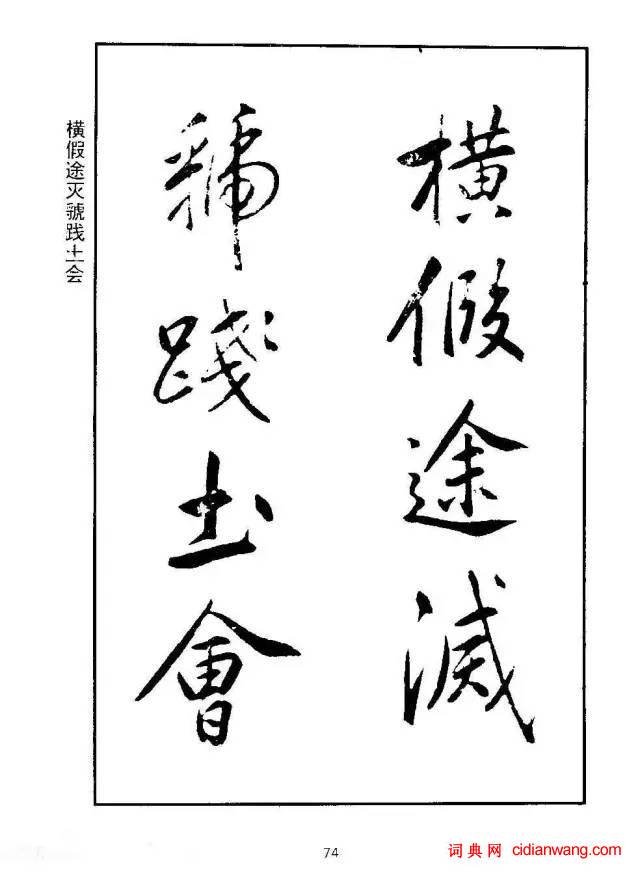 横假途滅
虢踐土會
横假途灭虢践土会
74
词典网 cidianwang.com